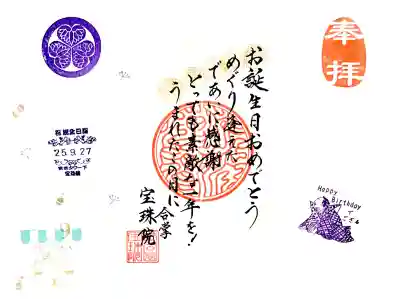 奉拝
お誕生日おめでとう
めぐり逢えた
であいに感謝
とっても素敵な一年を!
うまれたこの日に
合掌
宝珠院
25.9.27
Happy
Birthday